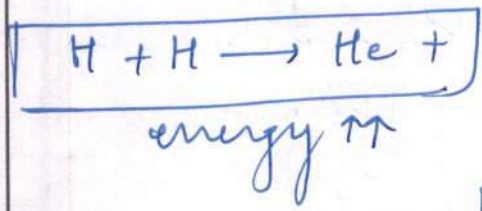 H + H ⟶ He +
energy ↑↑